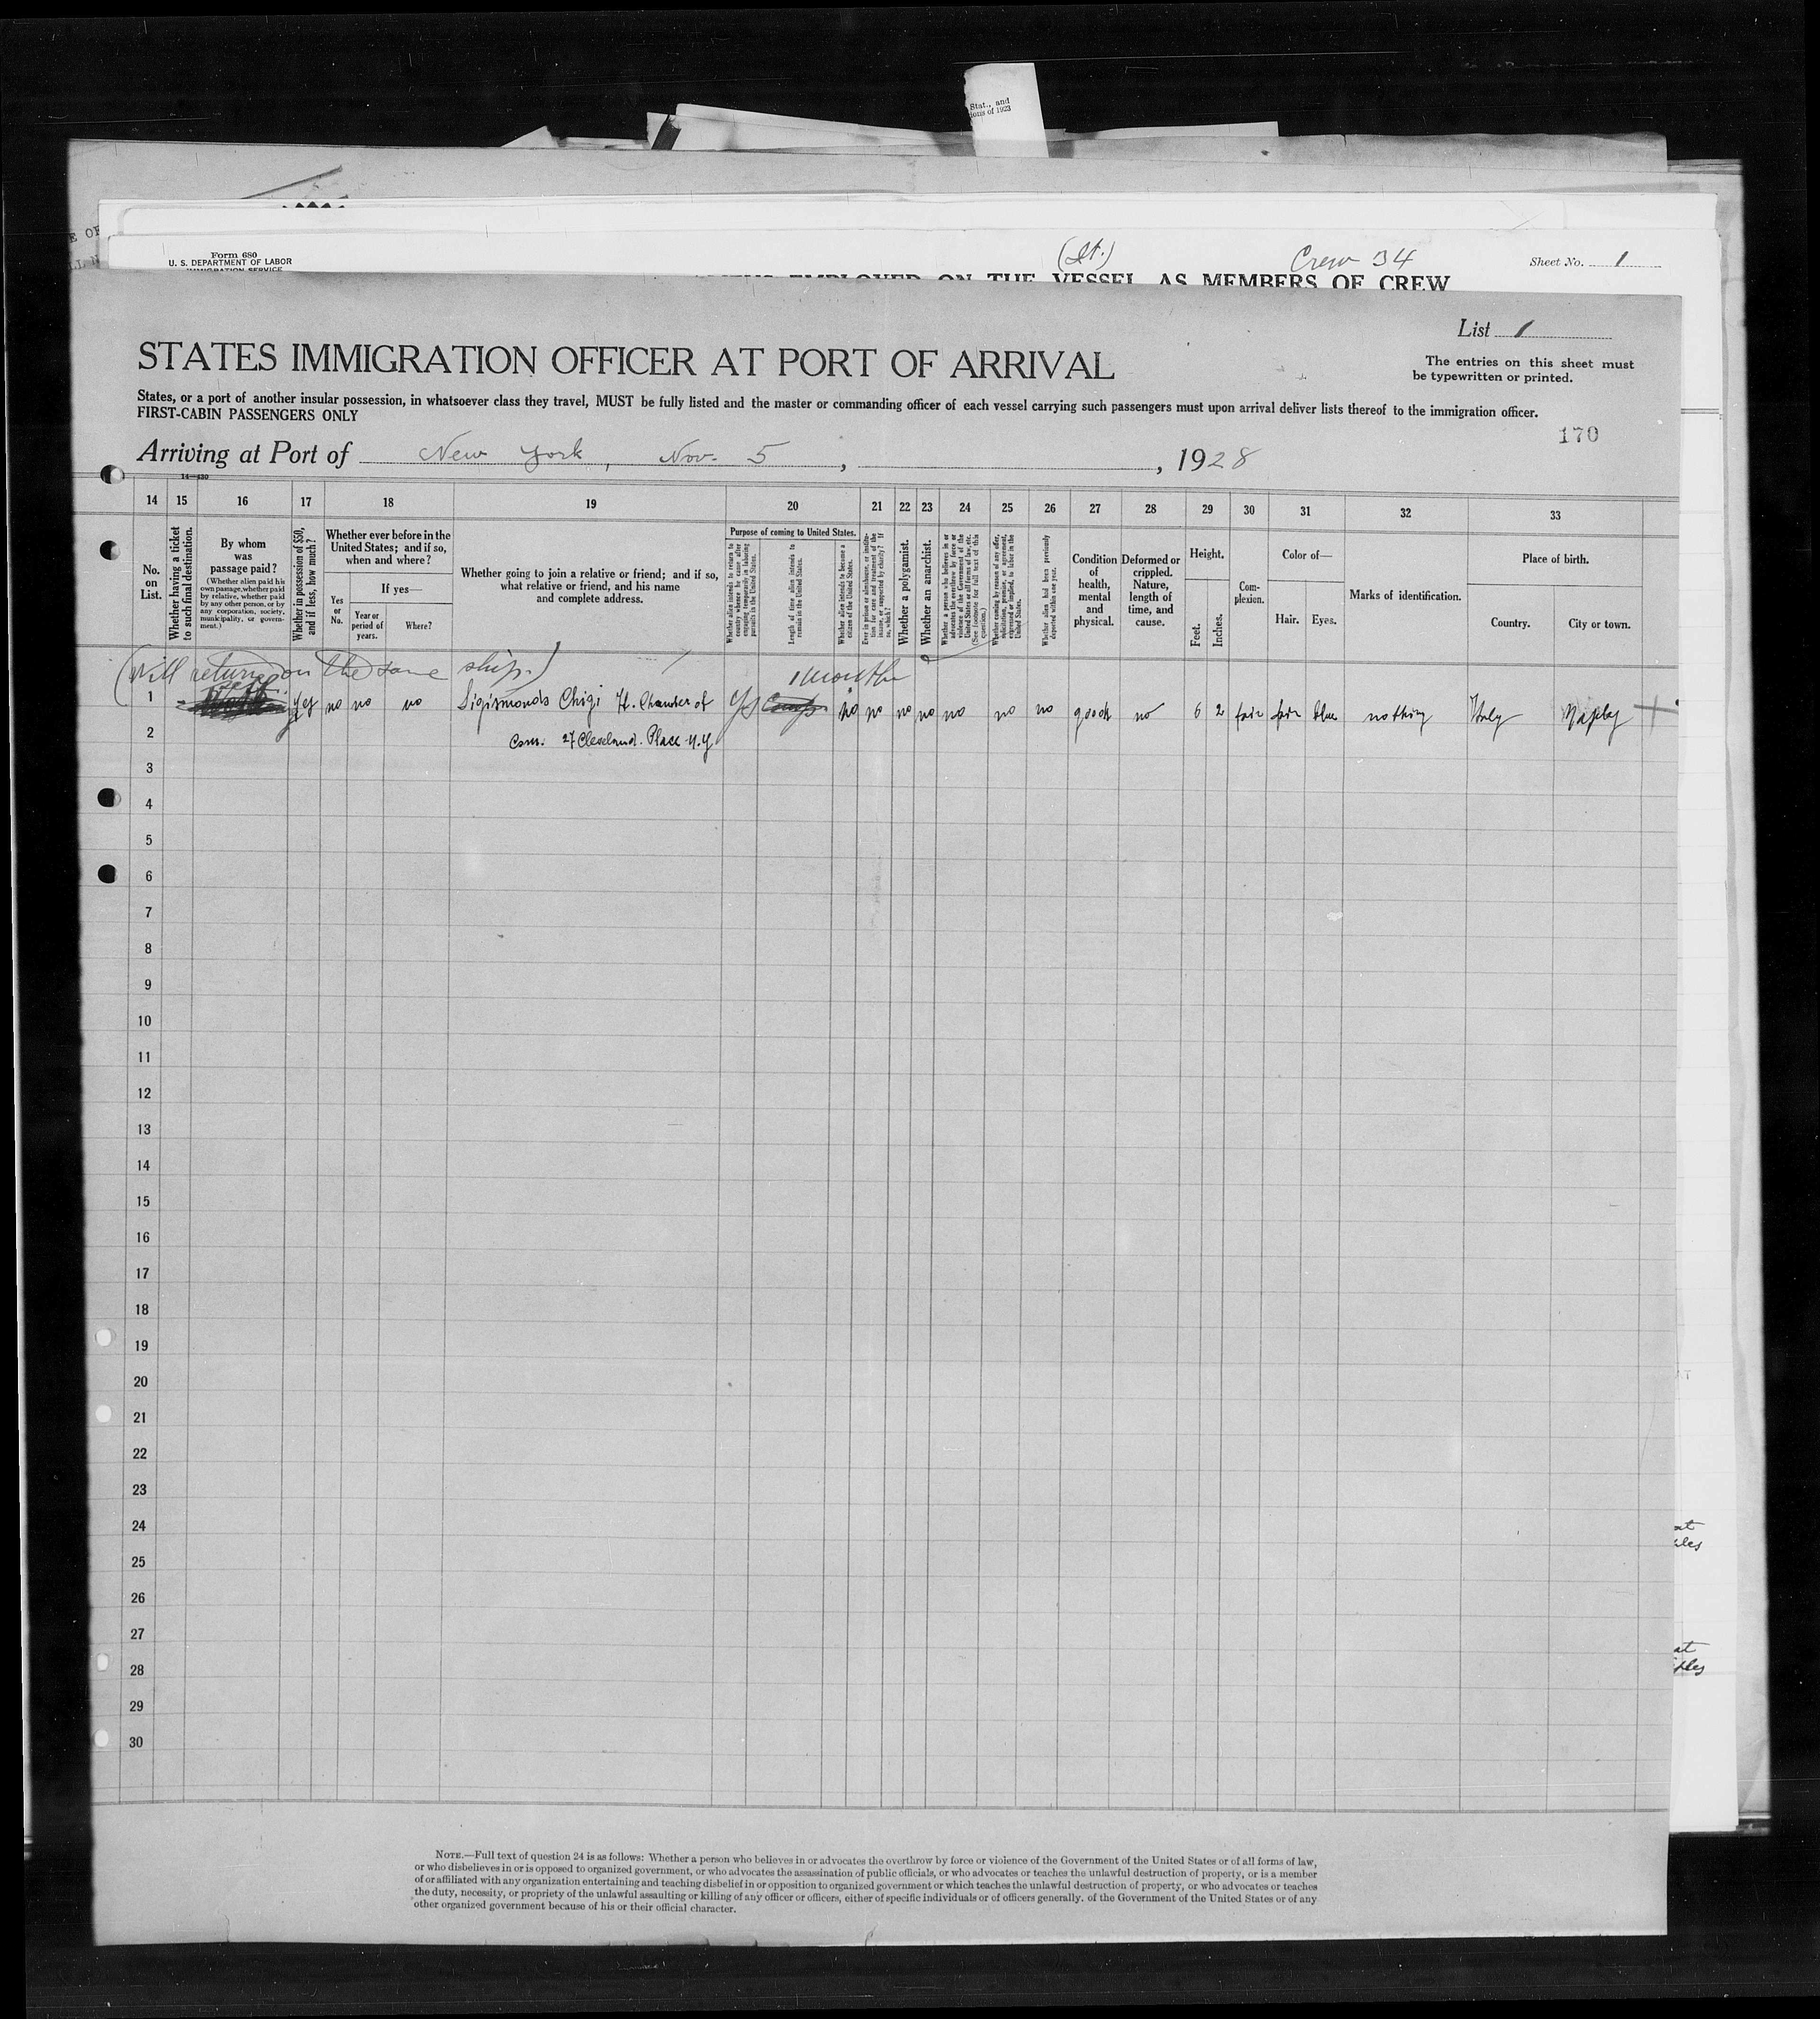 Stat., and
ions of 1923
E OF
Form 680
U. S. DEPARTMENT OF LABOR
IMMIGRATION SERVICE
(It.)
Crew 34
Sheet No. 1
EMPLOYED ON THE VESSEL AS MEMBERS OF CREW
List 1
STATES IMMIGRATION OFFICER AT PORT OF ARRIVAL
The entries on this sheet must
be typewritten or printed.
States, or a port of another insular possession, in whatsoever class they travel, MUST be fully listed and the master or commanding officer of each vessel carrying such passengers must upon arrival deliver lists thereof to the immigration officer.
FIRST-CABIN PASSENGERS ONLY
170
Arriving at Port of New York, Nov. 5, , 1928
14—430
14 15 16 17 18 19 20 21 22 23 24 25 26 27 28 29 30 31 32 33
No.
on
List.
Whether having a ticket
to such final destination.
By whom
was
passage paid?
(Whether alien paid his
own passage, whether paid
by relative, whether paid
by any other person, or by
any corporation, society,
municipality, or govern-
ment.)
Whether in possession of $50,
and if less, how much?
Whether ever before in the
United States; and if so,
when and where?
If yes—
Yes
or
No.
Year or
period of
years.
Where?
Whether going to join a relative or friend; and if so,
what relative or friend, and his name
and complete address.
Purpose of coming to United States.
Whether alien intends to return to
country whence he came after
engaging temporarily in laboring
pursuits in the United States.
Length of time alien intends to
remain in the United States.
Whether alien intends to become a
citizen of the United States.
Ever in prison or almshouse, or institu-
tion for care and treatment of the
insane, or supported by charity? If
so, which?
Whether a polygamist.
Whether an anarchist.
Whether a person who believes in or
advocates the overthrow by force or
violence of the Government of the
United States or all forms of law, etc.
(See footnote for full text of this
question.)
Whether coming by reason of any offer,
solicitation, promise, or agreement,
expressed or implied, to labor in the
United States.
Whether alien had been previously
deported within one year.
Condition
of
health,
mental
and
physical.
Deformed or
crippled.
Nature,
length of
time, and
cause.
Height.
Feet.
Inches.
Com-
plexion.
Color of—
Hair.
Eyes.
Marks of identification.
Place of birth.
Country.
City or town.
(Will return on the same ship.)
1 month
1 self yes no no no Sigismondo Chigi It. Chamber of Yes no no no no no no no good no 6 2 fair fair blue nothing Italy Naples
2 Com. 27 Cleveland Place N.Y
3
4
5
6
7
8
9
10
11
12
13
14
15
16
17
18
19
20
21
22
23
24
25
26
27
28
29
30
NOTE.—Full text of question 24 is as follows: Whether a person who believes in or advocates the overthrow by force or violence of the Government of the United States or of all forms of law,
or who disbelieves in or is opposed to organized government, or who advocates the assassination of public officials, or who advocates or teaches the unlawful destruction of property, or is a member
of or affiliated with any organization entertaining and teaching disbelief in or opposition to organized government or which teaches the unlawful destruction of property, or who advocates or teaches
the duty, necessity, or propriety of the unlawful assaulting or killing of any officer or officers, either of specific individuals or of officers generally. of the Government of the United States or of any
other organized government because of his or their official character.